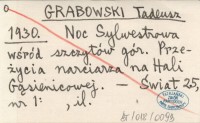 GRABOWSKI Tadeusz
1930. Noc Sylwestrowa
wśród szczytów gór. Prze-
życia narciarza na Hali
Gąsienicowej. — Świat 25,
nr 1: , il.